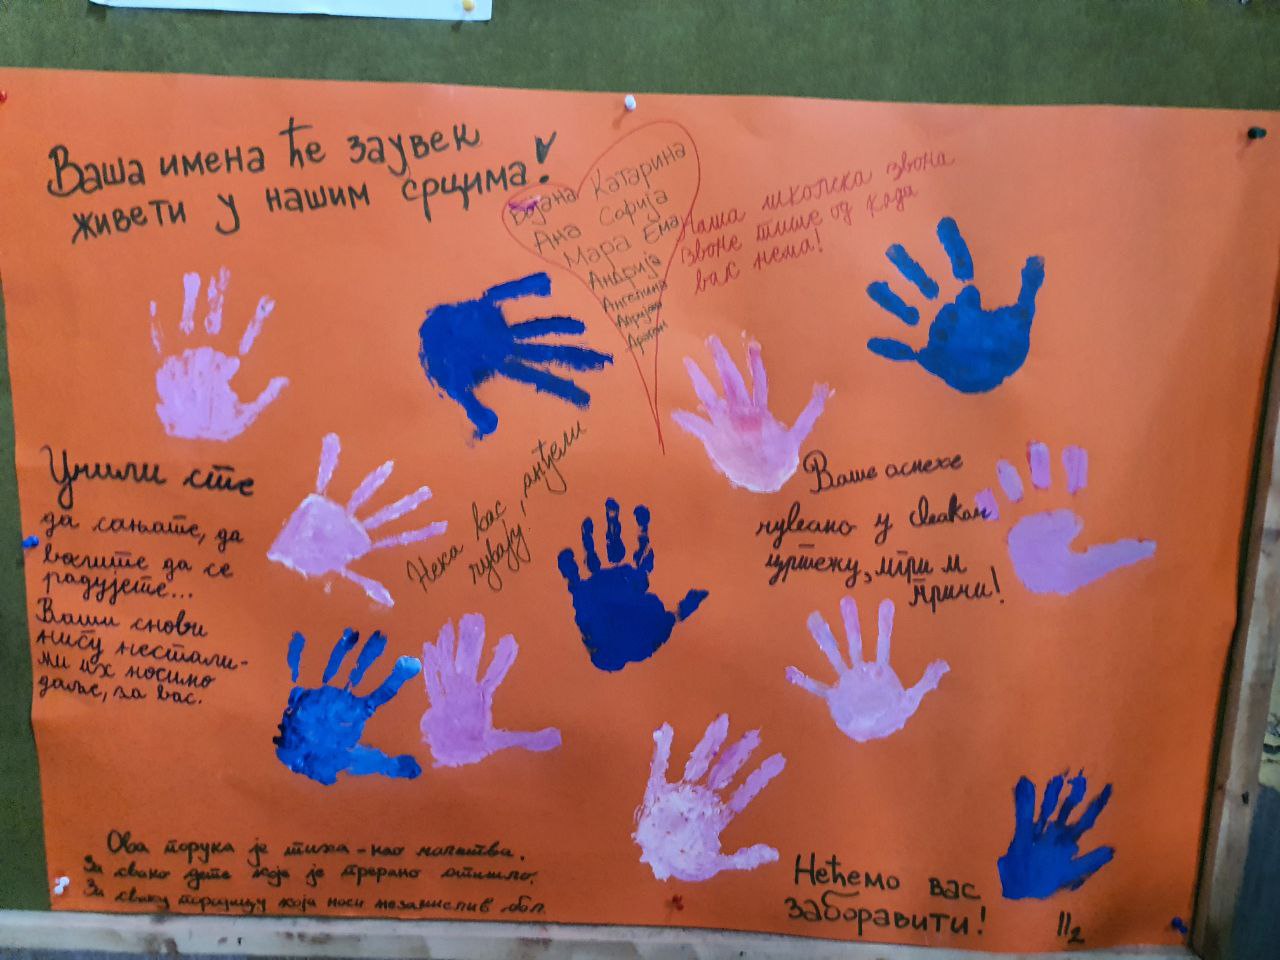 Ваша имена ће заувек
живети у нашим срцима!
Бојана Катарина
Ана Софија
Мара Ема
Андрија
Ангелина
Адријан
Драган
Наша школска звона
звоне тише од када
вас нема!
Учили сте
да сањате, да
волите да се
радујете...
Ваши снови
нису нестали-
ми их носимо
даље, за вас.
Нека вас анђели
чувају,
Ваше осмехе
чувамо у сваком
цртежу, игри и
причи!
Ова порука је тиха-као молитва.
За свако дете које је прерано отишло.
За сваку породицу која носи незамислив бол.
Нећемо вас
заборавити!
II2